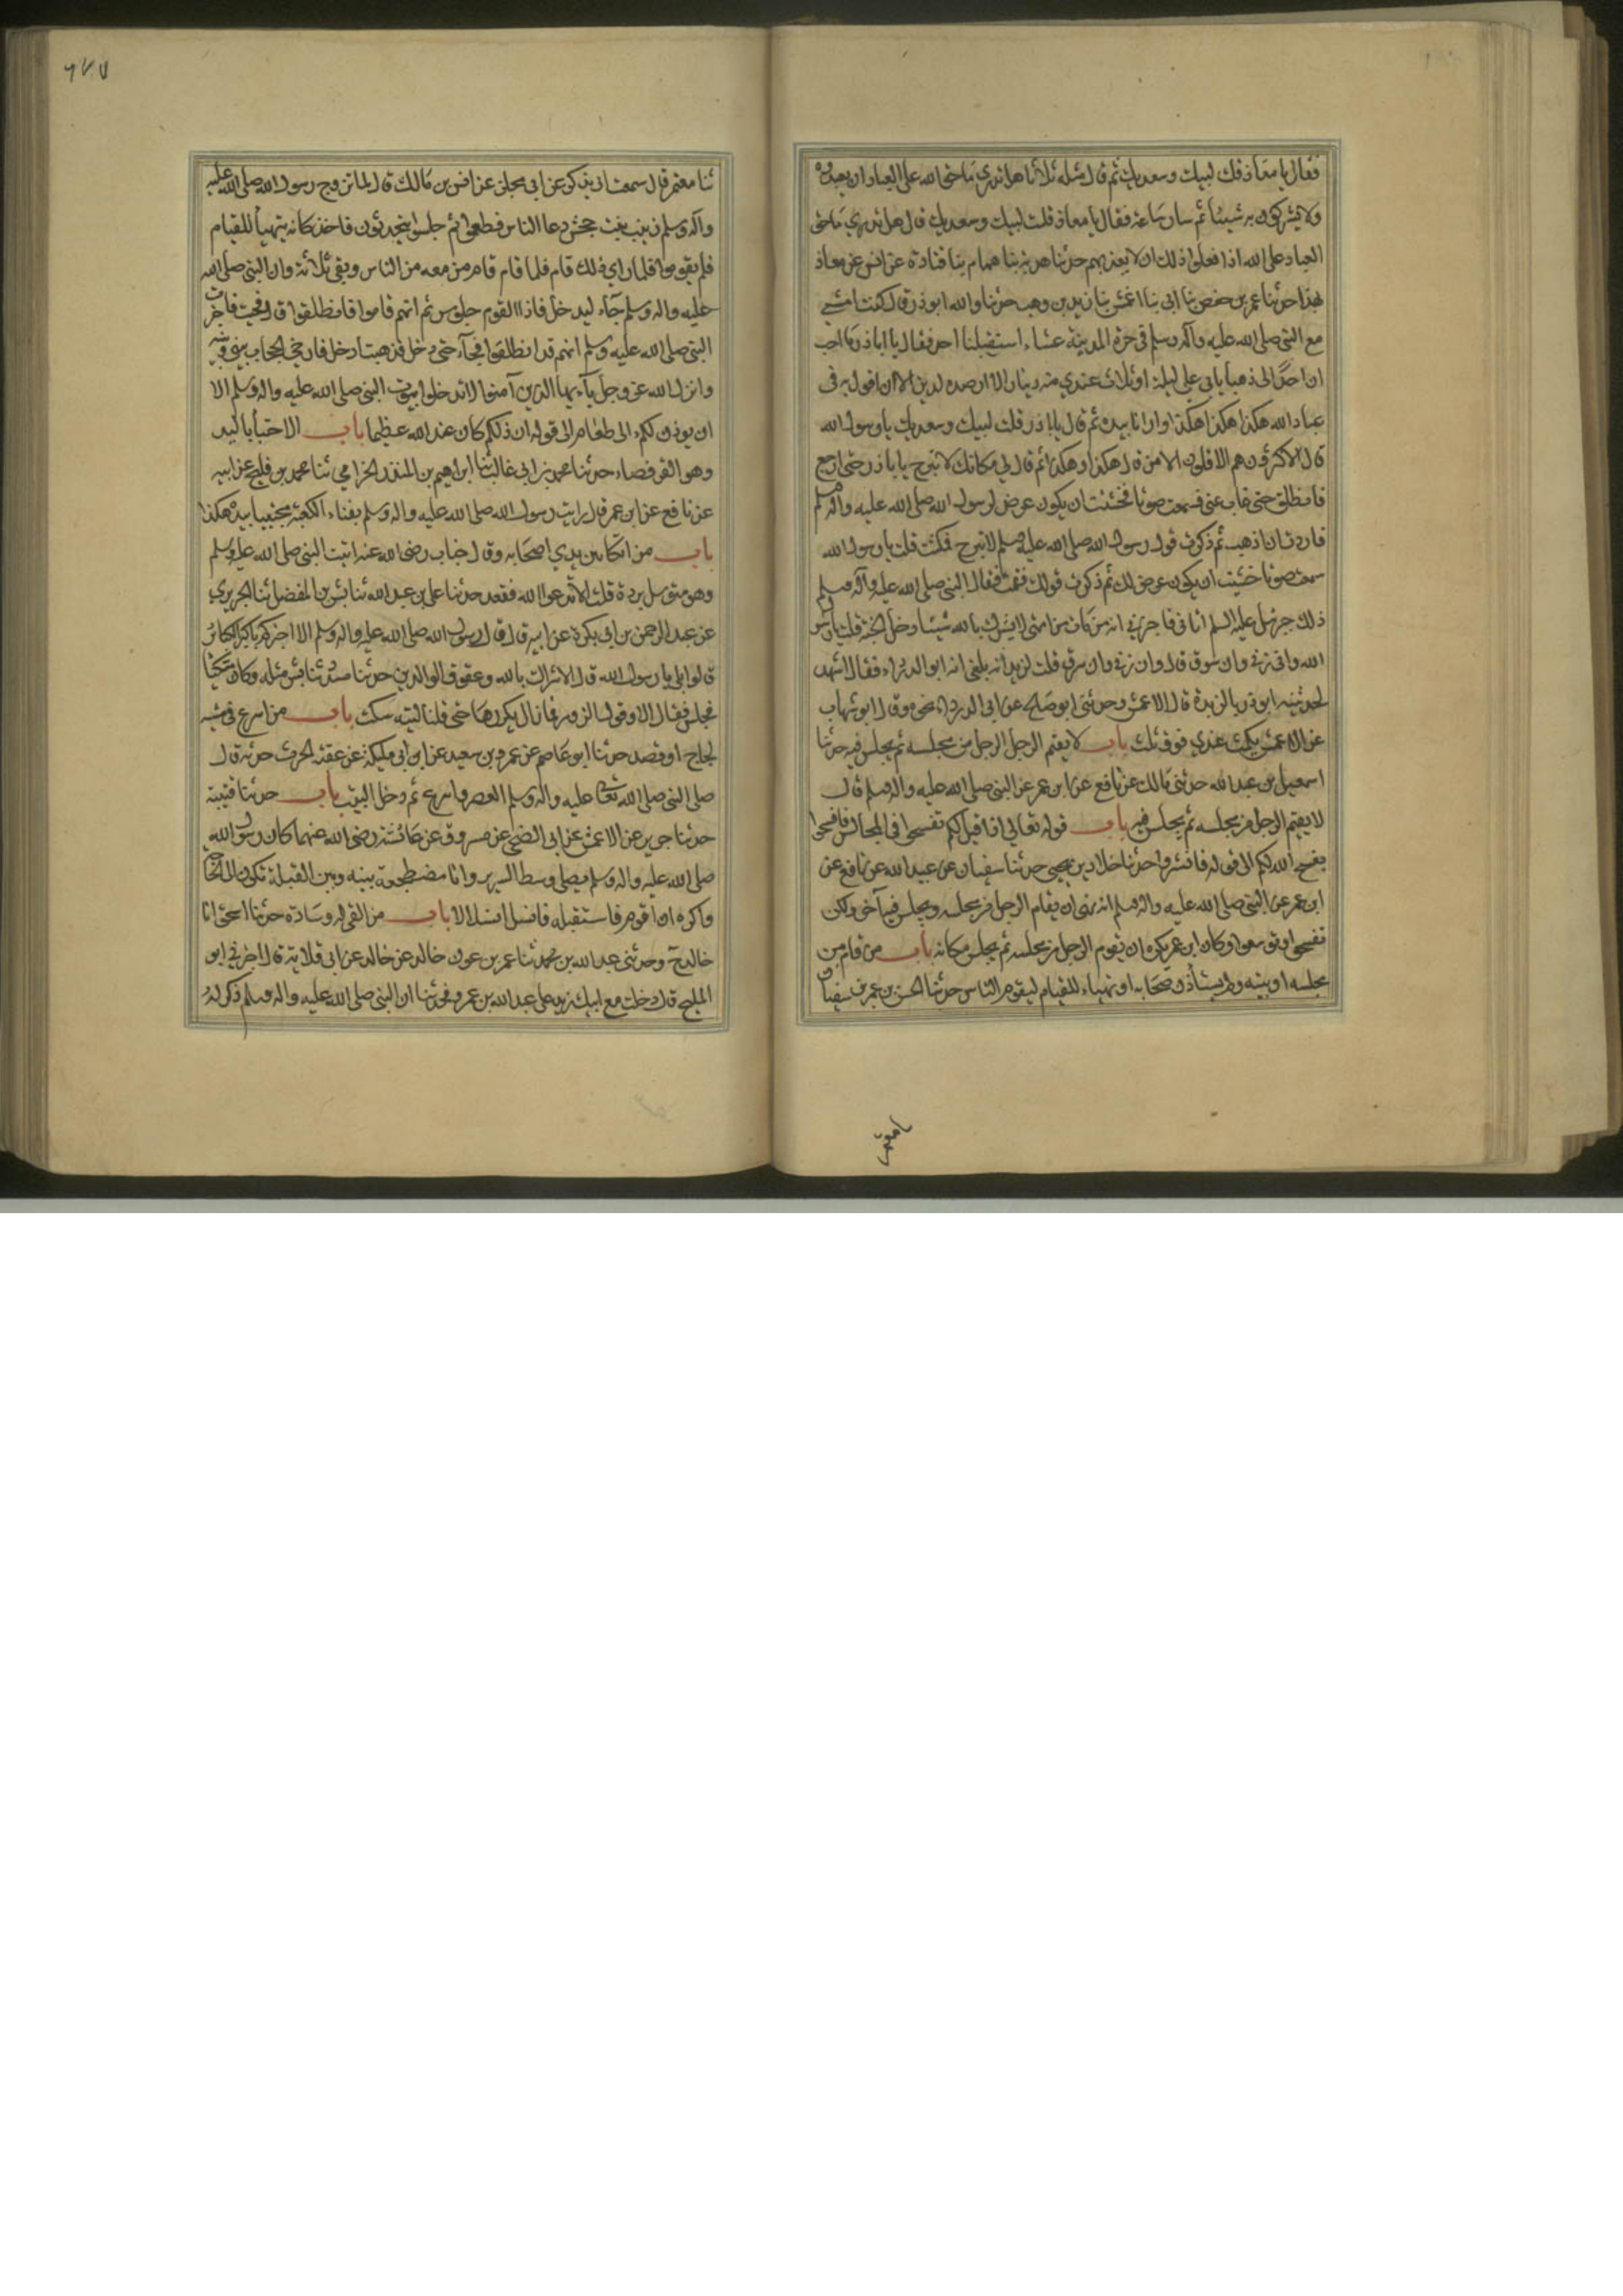 فقال يا معاذ قلت لبيك وسعديك ثم قال مثله ثلاثا هل تدري ما حق الله على العباد ان يعبدوه
ولا يشركون به شيئا ثم سار ساعة فقال يا معاذ قلت لبيك وسعديك قال هل تدري ما حق
العباد على الله اذا فعلوا ذلك ان لا يعذبهم حدثنا هدبة ثنا همام ثنا قتادة عن انس عن معاذ
بهذا حدثنا عمر بن حفص ثنا ابي ثنا اعمش ثنا زيد بن وهب حدثنا والله ابو ذر قال كنت امشي
مع النبي صلى الله عليه وآله وسلم في حرة المدينة عشاء استقبلنا احد فقال يا اباذر ما احب
ان احدا لي ذهبا ياتي علي ليلة او ثلاث عندي منه دينار الا ارصده لدين الا ان اقول به في
عباد الله هكذا هكذا هكذا وارانا بيده ثم قال يا اباذر قلت لبيك وسعديك يا رسول الله
قال الاكثرون هم الاقلون الا من قال هكذا وهكذا ثم قال لي مكانك لا تبرح يا باذر حتى ارجع
فانطلق حتى غاب عني فسمعت صوتا فخشيت ان يكون عرض لرسول الله صلى الله عليه وآله وسلم
فاردت ان اذهب ثم ذكرت قول رسول الله صلى الله عليه وسلم لا تبرح فمكثت قلت يا رسول الله
سمعت صوتا خشيت ان يكون عرض لك ثم ذكرت قولك فقمت فقال النبي صلى الله عليه وآله وسلم
ذلك جبرئيل عليه السلم اتاني فاخبرني انه من مات من امتي لا يشرك بالله شيئا دخل الجنة قلت يا رسول
الله وان زنى وان سرق قال وان زنى وان سرق قلت لزيد انه بلغني انه ابو الدرداء فقال اشهد
لحدثنيه ابو ذر بالربذة قال الاعمش وحدثني ابو صالح عن ابي الدرداء نحوه وقال ابو شهاب
عن الاعمش يمكث عندي فوق ثلث باب لا يقيم الرجل الرجل من مجلسه ثم يجلس فيه حدثنا
اسمعيل بن عبد الله حدثني مالك عن نافع عن ابن عمر عن النبي صلى الله عليه وآله وسلم قال
لا يقيم الرجل من مجلسه ثم يجلس فيه باب قوله تعالى اذا قيل لكم تفسحوا في المجالس فافسحوا
يفسح الله لكم الى قوله فانشزوا حدثنا خلاد بن يحيى حدثنا سفيان عن عبيد الله عن نافع عن
ابن عمر عن النبي صلى الله عليه وآله وسلم انه نهى ان يقام الرجل من مجلسه ويجلس فيه آخر ولكن
تفسحوا وتوسعوا وكان ابن عمر يكره ان يقوم الرجل من مجلسه ثم يجلس مكانه باب من قام من
مجلسه او بيته ولم يستأذن اصحابه او تهياء للقيام ليقوم الناس حدثنا الحسن بن عمر بن شقيق
ثنا معتمر
ثنا معتمر قال سمعت ابي يذكر عن ابي مجلز عن انس بن مالك قال لما تزوج رسول الله صلى الله عليه
وآله وسلم زينب بنت جحش دعا الناس فطعموا ثم جلسوا يتحدثون فاخذ كانه يتهيأ للقيام
فلم يقوموا فلما رأى ذلك قام فلما قام قام من معه من الناس وبقي ثلاثة وان النبي صلى الله
عليه وآله وسلم جاء ليدخل فاذا القوم جلوس ثم انهم قاموا فانطلقوا قال فجئت فاخبرت
النبي صلى الله عليه وسلم انهم قد انطلقوا فجاء حتى دخل فذهبت ادخل فارخى الحجاب بيني وبينه
وانزل الله عز وجل يا ايها الذين آمنوا لا تدخلوا بيوت النبي صلى الله عليه وآله وسلم الا
ان يوذن لكم الى طعام الى قوله ان ذلكم كان عند الله عظيما باب الاحتباء باليد
وهو القرفصاء حدثنا محمد بن ابي غالب ثنا ابراهيم بن المنذر الحزامي ثنا محمد بن فليح عن ابيه
عن نافع عن ابن عمر قال رايت رسول الله صلى الله عليه وآله وسلم بفناء الكعبة محتبيا بيده هكذا
باب من اتكأ بين يدي اصحابه وقال خباب رضي الله عنه اتيت النبي صلى الله عليه وسلم
وهو متوسل بردة قلت الا تدعوا الله فقعد حدثنا علي بن عبد الله ثنا بشر بن المفضل ثنا الجريري
عن عبد الرحمن بن ابي بكرة عن ابيه قال قال رسول الله صلى الله عليه وآله وسلم الا اخبركم باكبر الكبائر
قالوا بلى يا رسول الله قال الاشراك بالله وعقوق الوالدين حدثنا مسدد ثنا بشر مثله وكان متكئا
فجلس فقال الا وقول الزور فما زال يكررها حتى قلنا ليته سكت باب من اسرع في مشيه
لحاجة او قصد حدثنا ابو عاصم عن عمرو بن سعيد عن ابن ابي مليكة عن عقبة الحرث حدثه قال
صلى النبي صلى الله تعالى عليه وآله وسلم العصر فاسرع ثم دخل البيت باب حدثنا قتيبة
حدثنا جرير عن الاعمش عن ابي الضحى عن مسروق عن عائشة رضي الله عنهما كان رسول الله
صلى الله عليه وآله وسلم يصلي وسط السرير وانا مضطجعة بينه وبين القبلة تكون لي الحاجة
واكره ان اقوم فاستقبله فانسل انسلالا باب من القى له وسادة حدثنا اسحق انا
خالد ح وحدثني عبد الله بن محمد ثنا عمر بن عون خالد عن خالد عن ابي قلابة قال اخبرني ابو
المليح قال دخلت مع ابيك زيد على عبد الله بن عمرو فحدثنا ان النبي صلى الله عليه وآله وسلم ذكر له